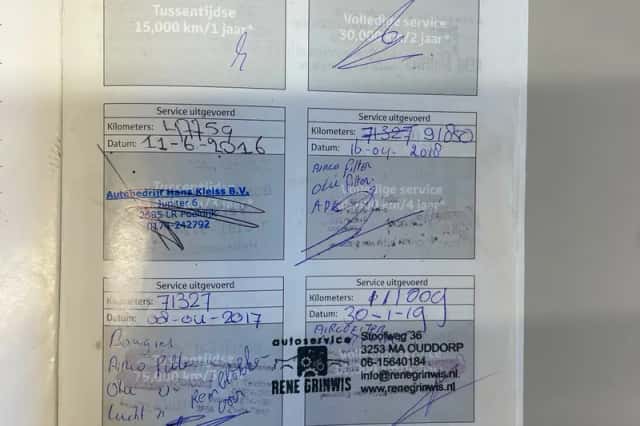 Tussentijdse
15,000 km/1 jaar*
Volledige service
30,000 km/2 jaar*
Service uitgevoerd
Kilometers: 47759
Datum: 11-6-2016
Autobedrijf Hans Kleiss B.V.
Jupiter 6
2685 LR Poeldijk
0174-242792
Service uitgevoerd
Kilometers: 71327 91880
Datum: 16-04-2018
Airco filter
Olie filter
APK
Volledige service
km/4 jaar*
Service uitgevoerd
Kilometers: 71327
Datum: 02-04-2017
Bougies
Airco filter
Olie
Lucht
Rem
Tussentijdse
75,000 km/
Service uitgevoerd
Kilometers: 111009
Datum: 30-1-19
autoservice
RENE GRINWIS
Stoofweg 36
3253 MA OUDDORP
06-15640184
info@renegrinwis.nl
www.renegrinwis.nl